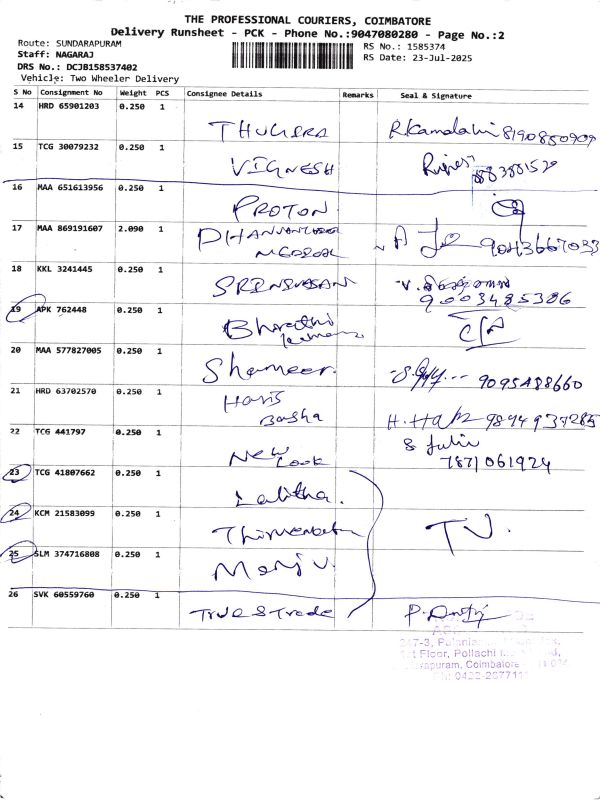 THE PROFESSIONAL COURIERS, COIMBATORE
Delivery Runsheet - PCK - Phone No.:9047080280 - Page No.:2
Route: SUNDARAPURAM
RS No.: 1585374
Staff: NAGARAJ
RS Date: 23-Jul-2025
DRS No.: DCJB158537402
Vehicle: Two Wheeler Delivery
S No Consignment No Weight PCS Consignee Details Remarks Seal & Signature
14 HRD 65901203 0.250 1
8190850909
15 TCG 30079232 0.250 1
VIGNESH
16 MAA 651613956 0.250 1
PROTON
17 MAA 869191607 2.090 1
DHANVANTHRI
MEDICAL
9043667033
18 KKL 3241445 0.250 1
SRINIVASAN
9003485386
19 APK 762448 0.250 1
Bharathi
20 MAA 577827005 0.250 1
Shameer.
9095488660
21 HRD 63702570 0.250 1
Haris
Basha
22 TCG 441797 0.250 1
New
Look
7871061924
23 TCG 41807662 0.250 1
Lalitha.
24 KCM 21583099 0.250 1
25 SLM 374716808 0.250 1
Manju.
26 SVK 60559760 0.250 1
True & Trade
247-3,
Floor, Pollachi
Coimbatore